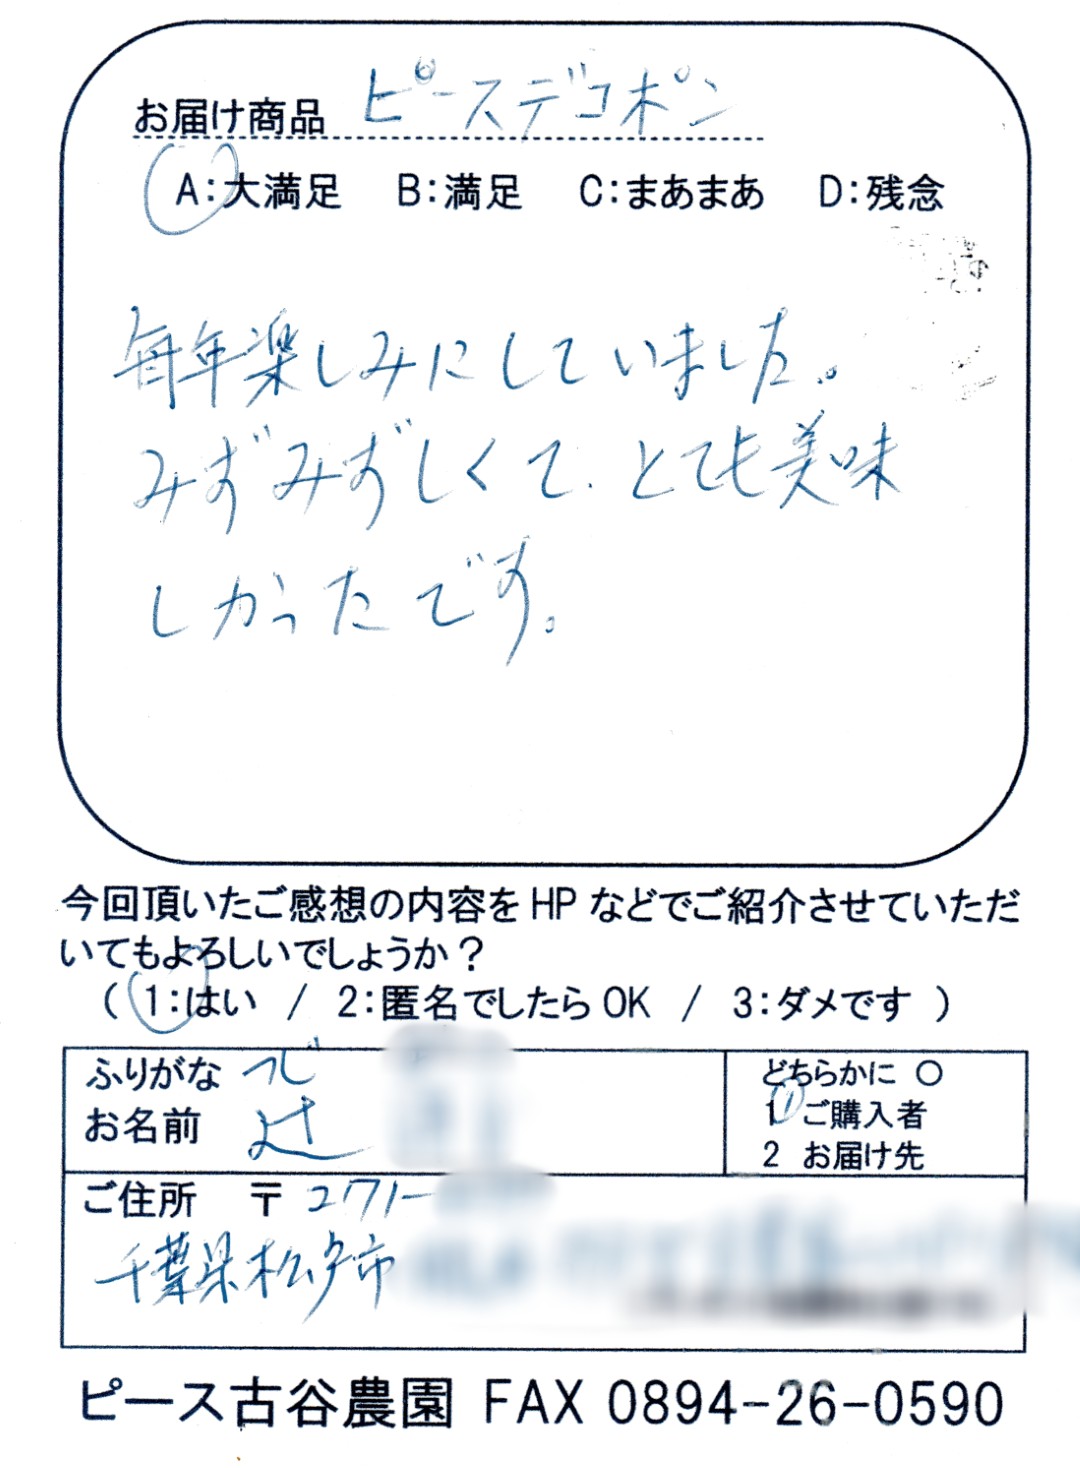 お届け商品 ピースデコポン
A:大満足 B:満足 C:まあまあ D:残念
毎年楽しみにしていました。
みずみずしくて、とても美味
しかったです。
今回頂いたご感想の内容をHPなどでご紹介させていただ
いてもよろしいでしょうか？
( 1:はい / 2:匿名でしたらOK / 3:ダメです )
ふりがな つじ
お名前 辻
どちらかに ○
1 ご購入者
2 お届け先
ご住所 〒271-
千葉県松戸市
ピース古谷農園 FAX 0894-26-0590